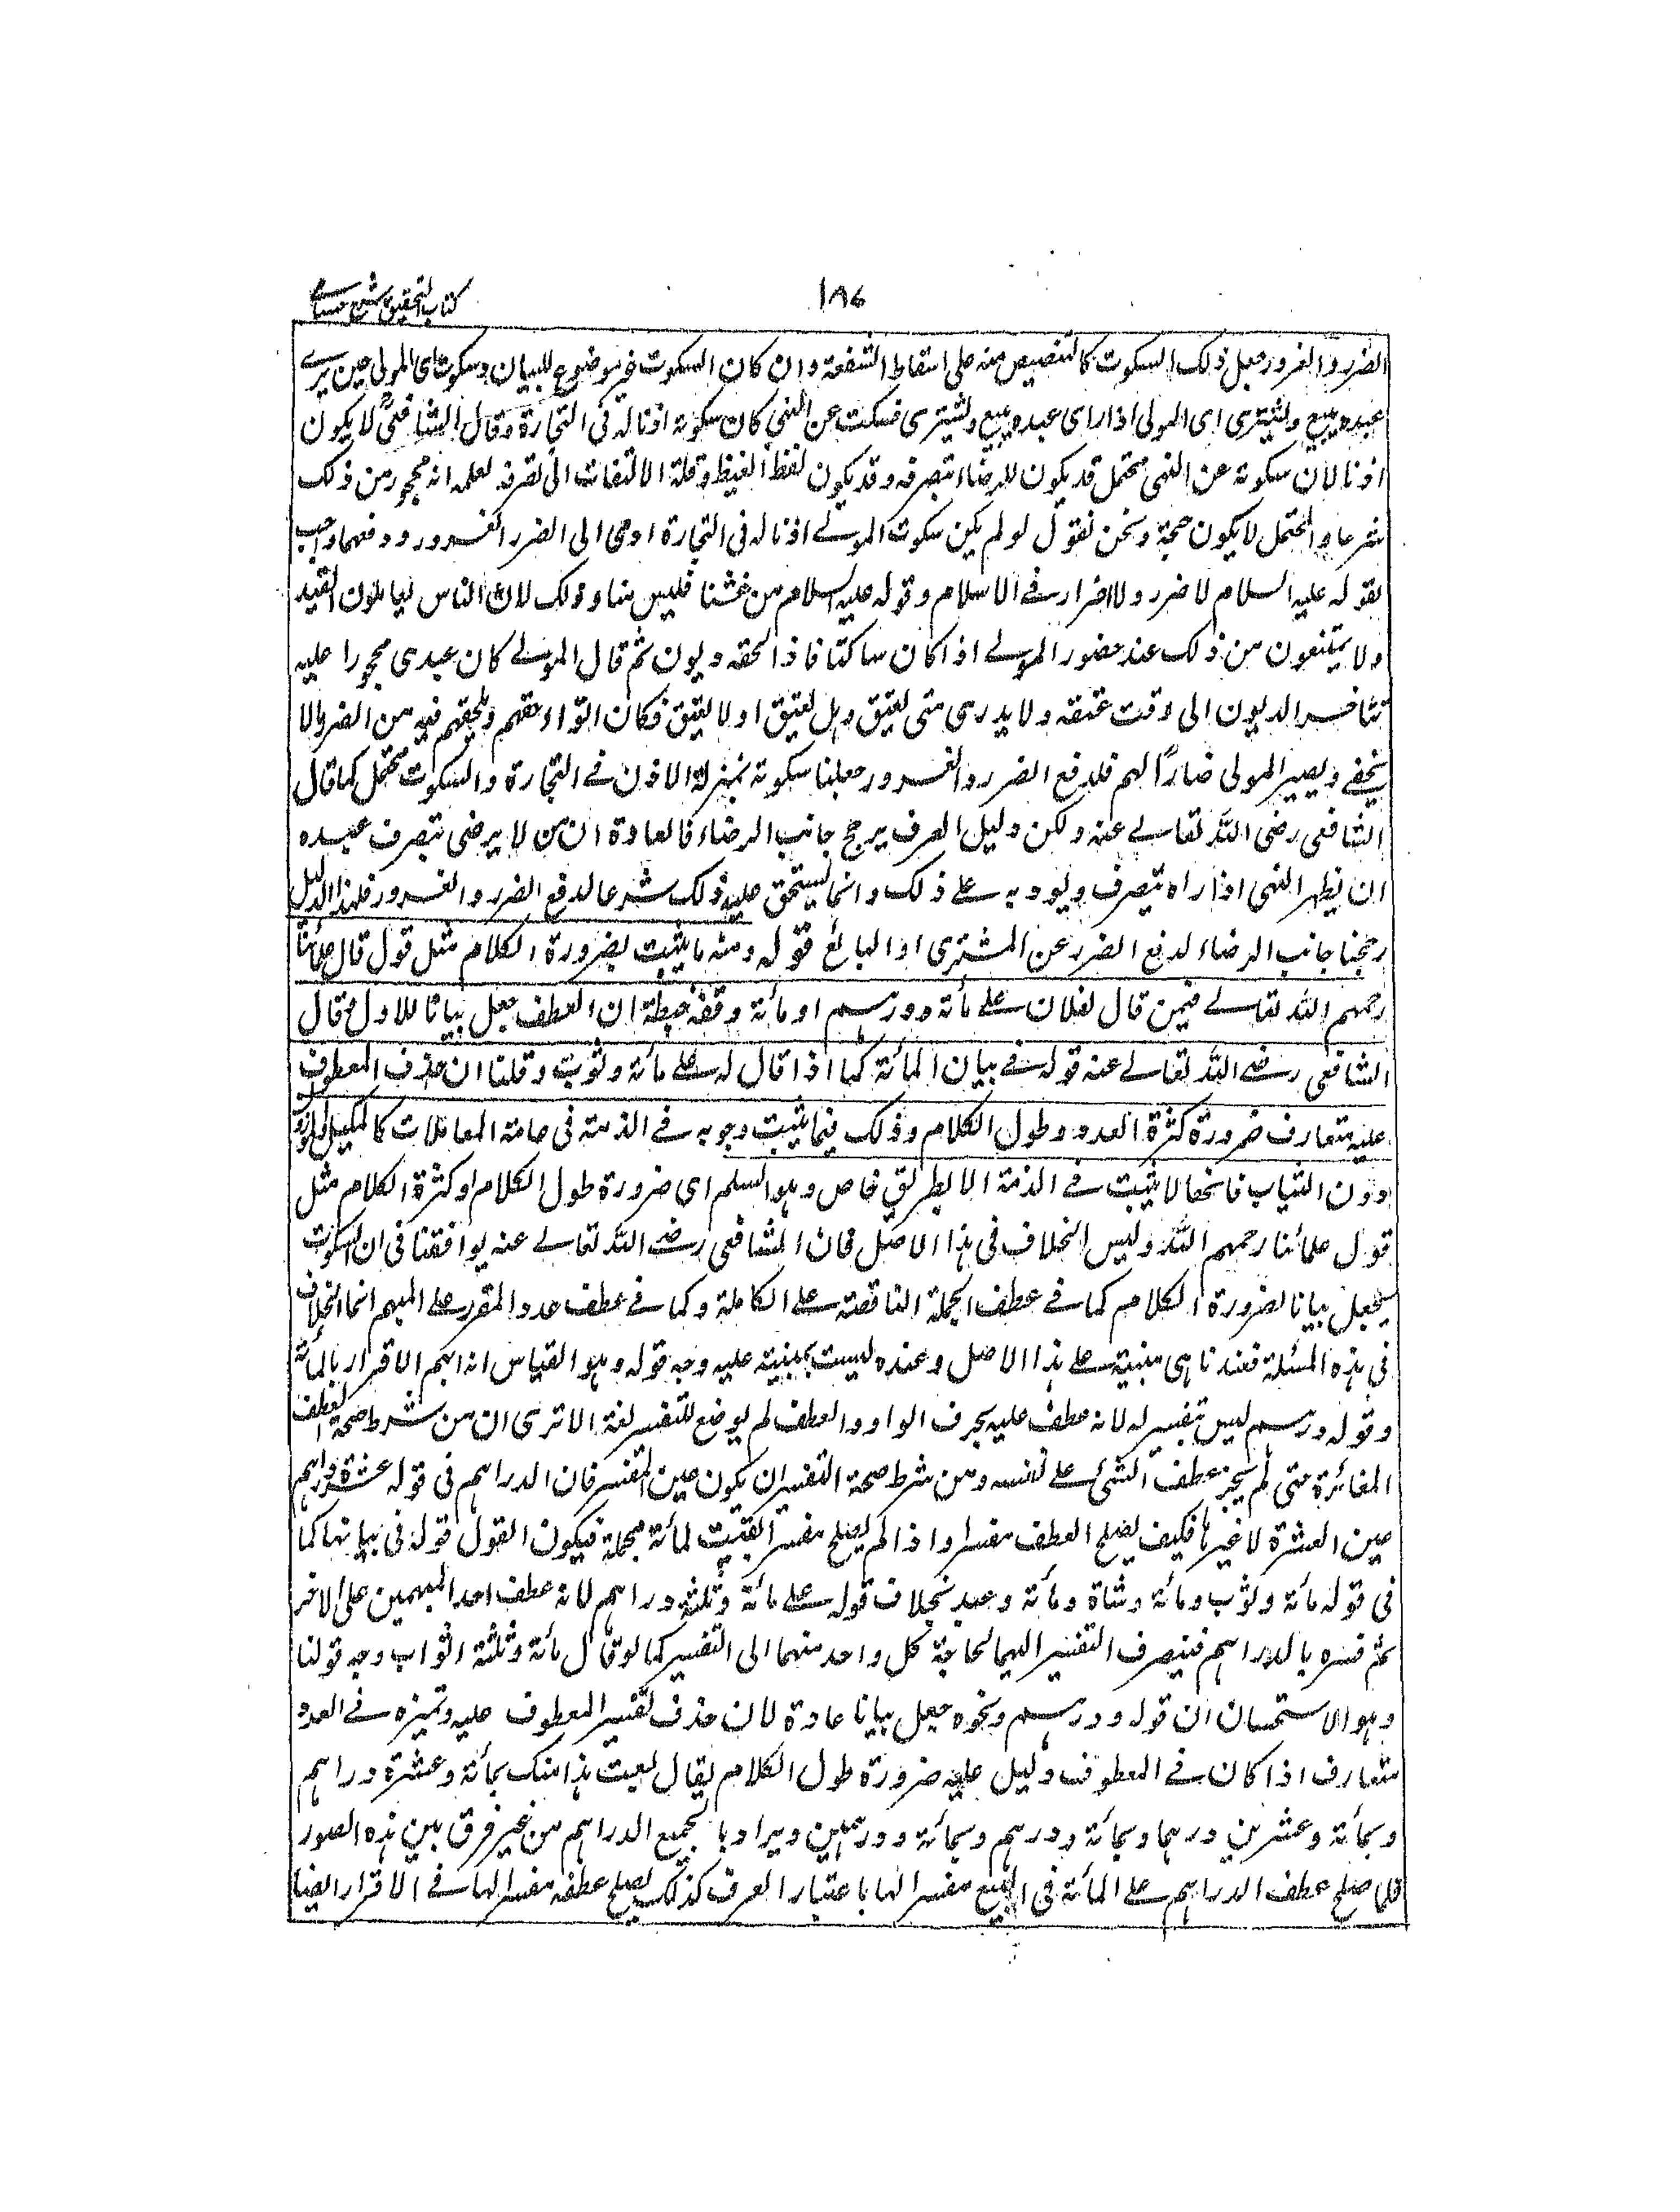 ١٨٦
كتاب التحقيق شرح حسامي
الضرر والغرور جعل ذلك السكوت كالتنصيص منه على اسقاط الشفعة وان كان السكوت غير موضوع للبيان وسكوت اى المولى حين يرى
عبده يبيع ويشترى اى المولى اذا راى عبده يبيع ويشترى فسكت عن النهى كان سكوته اذنا له فى التجارة وقال الشافعىؒ لا يكون
اذنا لان سكوته عن النهى محتمل قد يكون للرضاء بتصرفه وقد يكون لفظ الغيظ وقلة الالتفات الى تصرفه لعلمه انه محجور من ذلك
شرعا والمحتمل لا يكون حجة ونحن نقول لو لم يكن سكوت المولى اذنا له فى التجارة ادى الى الضرر والغرور ودفعهما واجب
لقوله عليه السلام لا ضرر ولا اضرار فى الاسلام وقوله عليه السلام من غشنا فليس منا وذلك لان الناس يعاملون العبد
ولا يمتنعون من ذلك عند حضور المولى اذا كان ساكتا فاذا لحقه ديون ثم قال المولى كان عبدى محجورا عليه
تتاخر الديون الى وقت عتقه ولا يدرى متى يعتق وهل يعتق او لا يعتق فكان اتواء حقهم ويلحقهم فيه من الضرر ما لا
يخفى ويصير المولى ضارًا لهم فلدفع الضرر والغرور جعلنا سكوته بمنزلة الاذن فى التجارة والسكوت محتمل كما قال
الشافعى رضى الله تعالى عنه ولكن دليل العرف يرجح جانب الرضاء فالعادة ان من لا يرضى بتصرف عبده
ان يظهر النهى اذا راه يتصرف ويودبه على ذلك وانما يستحق عليه ذلك شرعا لدفع الضرر والغرور فلهذا الدليل
رجحنا جانب الرضاء لدفع الضرر عن المشترى او البائع قوله ومنه ما يثبت بضرورة الكلام مثل قول قال علمائنا
رحمهم الله تعالى فيمن قال لفلان على مائة ودرهم او مائة وقفيز حنطة ان العطف جعل بيانًا للاول وقال
الشافعى رضى الله تعالى عنه قوله فى بيان المائة كما اذا قال له على مائة وثوب وقلنا ان حذف المعطوف
عليه متعارف ضرورة كثرة العدد وطول الكلام وذلك فيما يثبت وجوبه فى الذمة فى عامة المعاملات كالمكيل والموزون
دون الثياب فانها لا يثبت فى الذمة الا بطريق خاص وهو السلم اى ضرورة طول الكلام او كثرة الكلام مثل
قول علمائنا رحمهم الله وليس الخلاف فى هذا الاصل فان الشافعى رضى الله تعالى عنه يوافقنا فى ان السكوت
يجعل بيانا لضرورة الكلام كما فى عطف الجملة الناقصة على الكاملة وكما فى عطف عدد المقدر على المبهم انما الخلاف
فى هذه المسئلة فعندنا هى مبنية على هذا الاصل وعنده ليست بمبنية عليه وجه قوله وهو القياس انه ابهم الاقرار بالمائة
وقوله ودرهم ليس بتفسير له لانه عطف عليه بحرف الواو والعطف لم يوضع للتفسير لغة الا ترى ان من شرط صحة العطف
المغائرة حتى لم يجز عطف الشئ على نفسه ومن شرط صحة التفسير ان يكون عين المفسر فان الدراهم فى قوله عشرة دراهم
عين العشرة لا غيرها فكيف يصلح العطف مفسرا واذا لم يصلح مفسرا بقيت المائة مجملة فيكون القول قوله فى بيانها كما
فى قوله مائة وثوب ومائة وشاة ومائة وعبد بخلاف قوله على مائة وثلثة دراهم لانه عطف احد المبهمين على الاخر
ثم فسره بالدراهم فينصرف التفسير اليهما لحاجة كل واحد منهما الى التفسير كما لو قال مائة وثلثة اثواب وجه قولنا
وهو الاستحسان ان قوله ودرهم ونحوه جعل بيانا عادة لان حذف تفسير المعطوف عليه وتميزه فى العدد
متعارف اذا كان فى المعطوف دليل عليه ضرورة طول الكلام يقال بعت هذا منك بمائة وعشرة دراهم
وبمائة وعشرين درهما وبمائة ودرهم وبمائة ودرهمين ويراد بالجميع الدراهم من غير فرق بين هذه الصور
فلما صلح عطف الدراهم على المائة فى البيع مفسرا لها باعتبار العرف كذلك يصلح عطفه مفسرا لها فى الاقرار ايضا